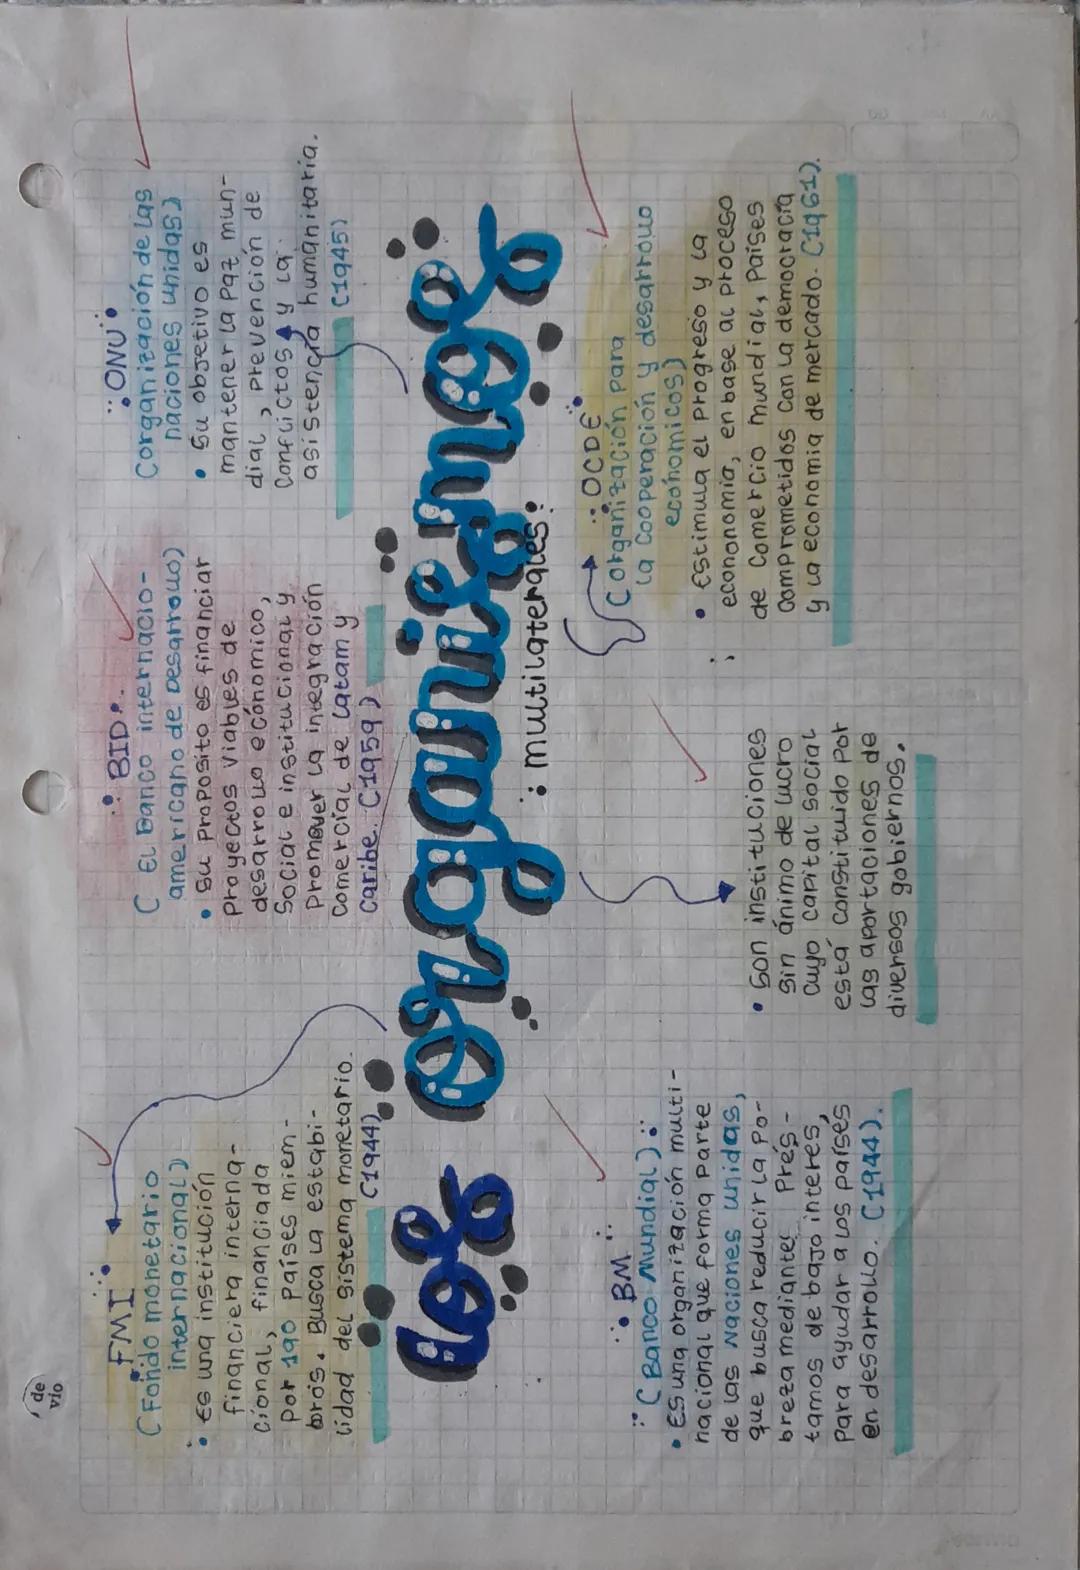 FMI
(Fondo monetario
internacional)
• Es una institución
financiera interna-
cional, financiada
por 190 países miem-
bros. Busca la estabi-
lidad del sistema monetario.
(1944)
BID
(El Banco internacio-
americano de Desarrollo)
• Su proposito es financiar
proyectos viables de
desarrollo económico,
social e institucional y
promover la integración
comercial de latam y
caribe. (1959)
ONU
(organización de las
naciones unidas)
• Su objetivo es
mantener la paz mun-
dial, prevención de
conflictos y la
asistencia humanitaria.
(1945)
los organismos
: multilaterales:
BM
(Banco Mundial)
• Es una organización multi-
nacional que forma parte
de las Naciones unidas,
que busca reducir la po-
breza mediante prés-
tamos de bajo interes,
para ayudar a los países
en desarrollo. (1944).
• Son instituciones
sin ánimo de lucro
cuyo capital social
está constituido por
las aportaciones de
diversos gobiernos.
OCDE
(organización para
la cooperación y desarrollo
económicos)
• Estimula el progreso y la
econonomia, en base al proceso
de comercio mundial, países
comprometidos con la democracia
y la economia de mercado. (1961).
de
vio